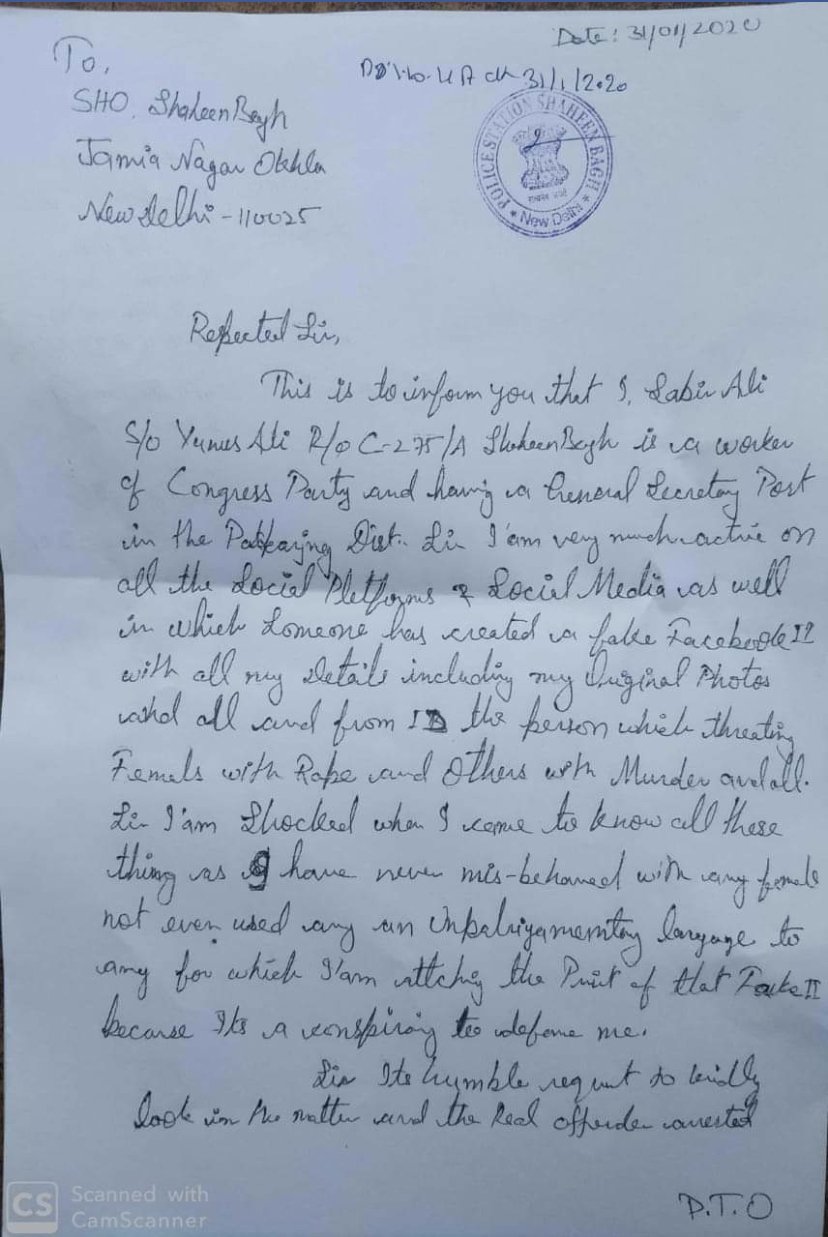 Date: 31/01/2020
To,
31/1/2020
SHO. Shaheen Bagh
POLICE STATION SHAHEEN BAGH
New Delhi
Jamia Nagar Okhla
New Delhi - 110025
Respected Sir,
This is to inform you that I, Sabir Ali
S/o Yunus Ali R/o C-275/A Shaheen Bagh is a worker
of Congress Party and having a General Secretary Post
in the Dist. Sir I'am very much active on
all the Social Platforms & Social Media as well
in which Someone has created a fake Facebook ID
with all my Details including my Original Photos
and all and from ID the person which threating
Femals with Rape and Others with Murder and all.
Sir I'am Shocked when I came to know all these
thing as I have never mis-behaved with any female
not even used any an language to
any for which I'am attching the Print of that Fake ID
because Its a conspiring to defame me.
Sir Its humble request to kindly
look in the matter and the Real offender arrested
P.T.O
CS Scanned with
CamScanner